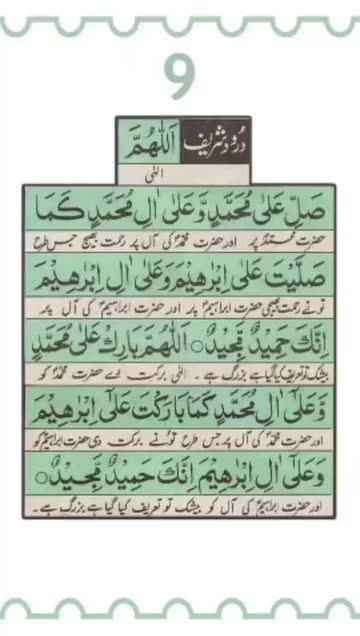 9
درود شریف اَللّٰهُمَّ
الٰہی
صَلِّ عَلٰی مُحَمَّدٍ وَّعَلٰۤی اٰلِ مُحَمَّدٍ کَمَا
حضرت محمدؐ پر اور حضرت محمدؐ کی آل پر رحمت بھیج جس طرح
صَلَّیْتَ عَلٰۤی اِبْرٰهِیْمَ وَعَلٰۤی اٰلِ اِبْرٰهِیْمَ
تو نے رحمت بھیجی حضرت ابراہیمؑ پر اور حضرت ابراہیمؑ کی آل پر
اِنَّکَ حَمِیْدٌ مَّجِیْدٌ○ اَللّٰهُمَّ بَارِكْ عَلٰی مُحَمَّدٍ
بیشک تو تعریف کیا گیا ہے بزرگ ہے ۔ الٰہی برکت دے حضرت محمدؐ کو
وَّعَلٰۤی اٰلِ مُحَمَّدٍ کَمَا بَارَکْتَ عَلٰۤی اِبْرٰهِیْمَ
اور حضرت محمدؐ کی آل پر جس طرح تو نے برکت دی حضرت ابراہیمؑ کو
وَعَلٰۤی اٰلِ اِبْرٰهِیْمَ اِنَّکَ حَمِیْدٌ مَّجِیْدٌ○
اور حضرت ابراہیمؑ کی آل کو بیشک تو تعریف کیا گیا ہے بزرگ ہے ۔